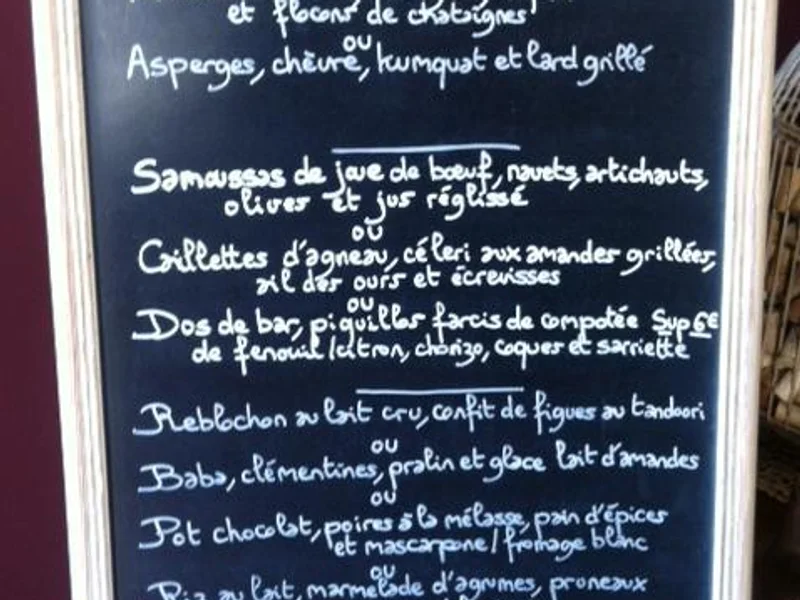 et flocons de chataignes
ou
Asperges, chèvre, kumquat et lard grillé
Samoussas de joue de bœuf, navets, artichauts,
olives et jus réglissé
ou
Gillettes d'agneau, céleri aux amandes grillées,
ail des ours et écrevisses
ou
Dos de bar, piquillos farcis de compotée Sup 6€
de fenouil/citron, chorizo, coques et sarriette
Reblochon au lait cru, confit de figues au tandoori
ou
Baba, clémentines, pralin et glace lait d'amandes
ou
Pot chocolat, poires à la mélasse, pain d'épices
et mascarpone/fromage blanc
ou
Riz au lait, marmelade d'agrumes, proneaux